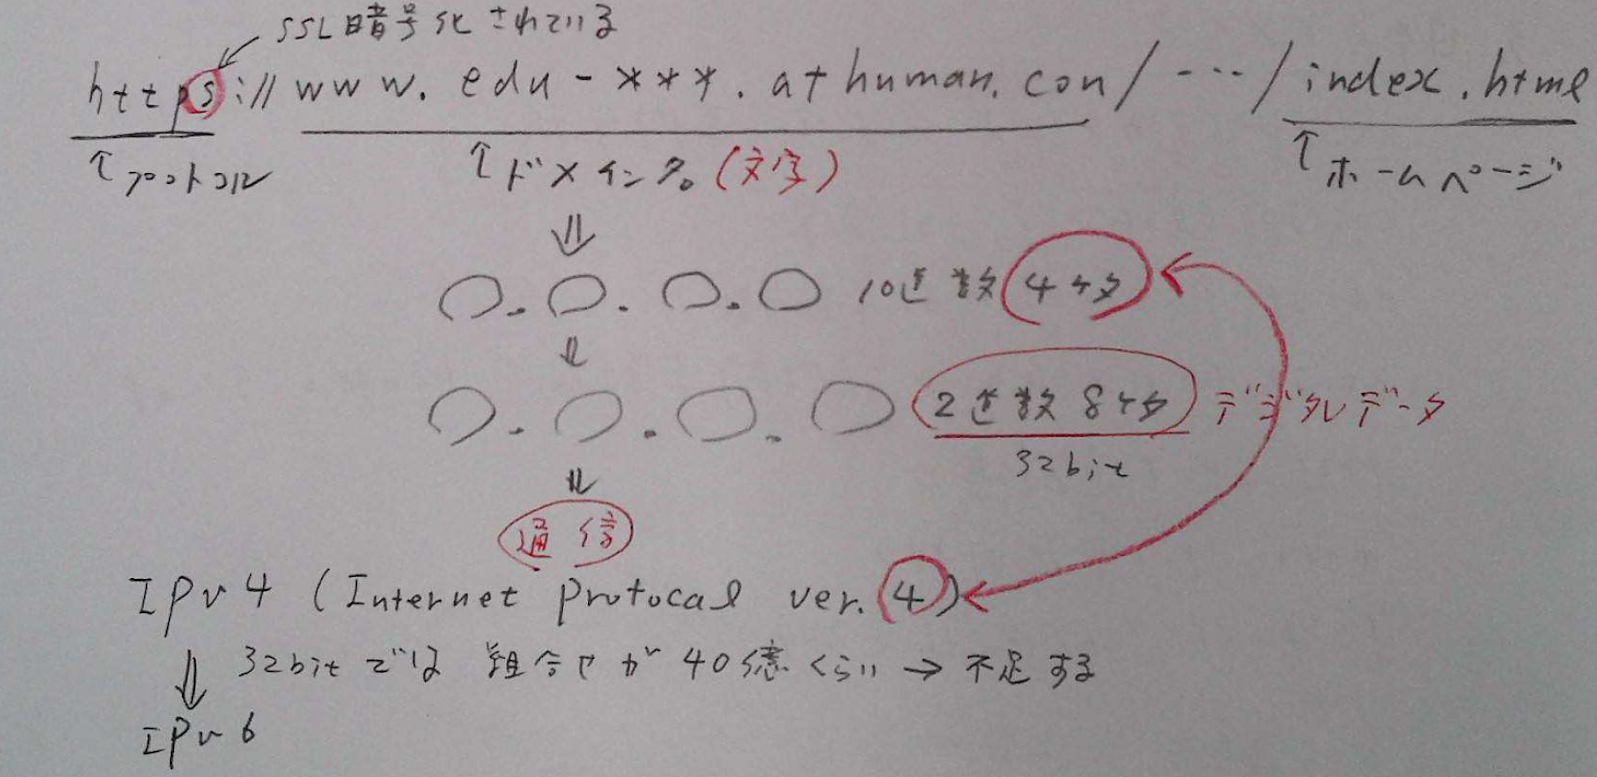 SSL暗号化されている
https://www.edu-***.athuman.con/---/index.html
↑プロトコル ↑ドメイン名(文字) ↑ホームページ
⇓
○.○.○.○ 10進数4ケタ
⇓
○.○.○.○ 2進数8ケタ デジタルデータ
32bit
⇓
通信
IPv4 (Internet Protocal ver.4)
⇓ 32bitでは 組合せが40億くらい→不足する
IPv6